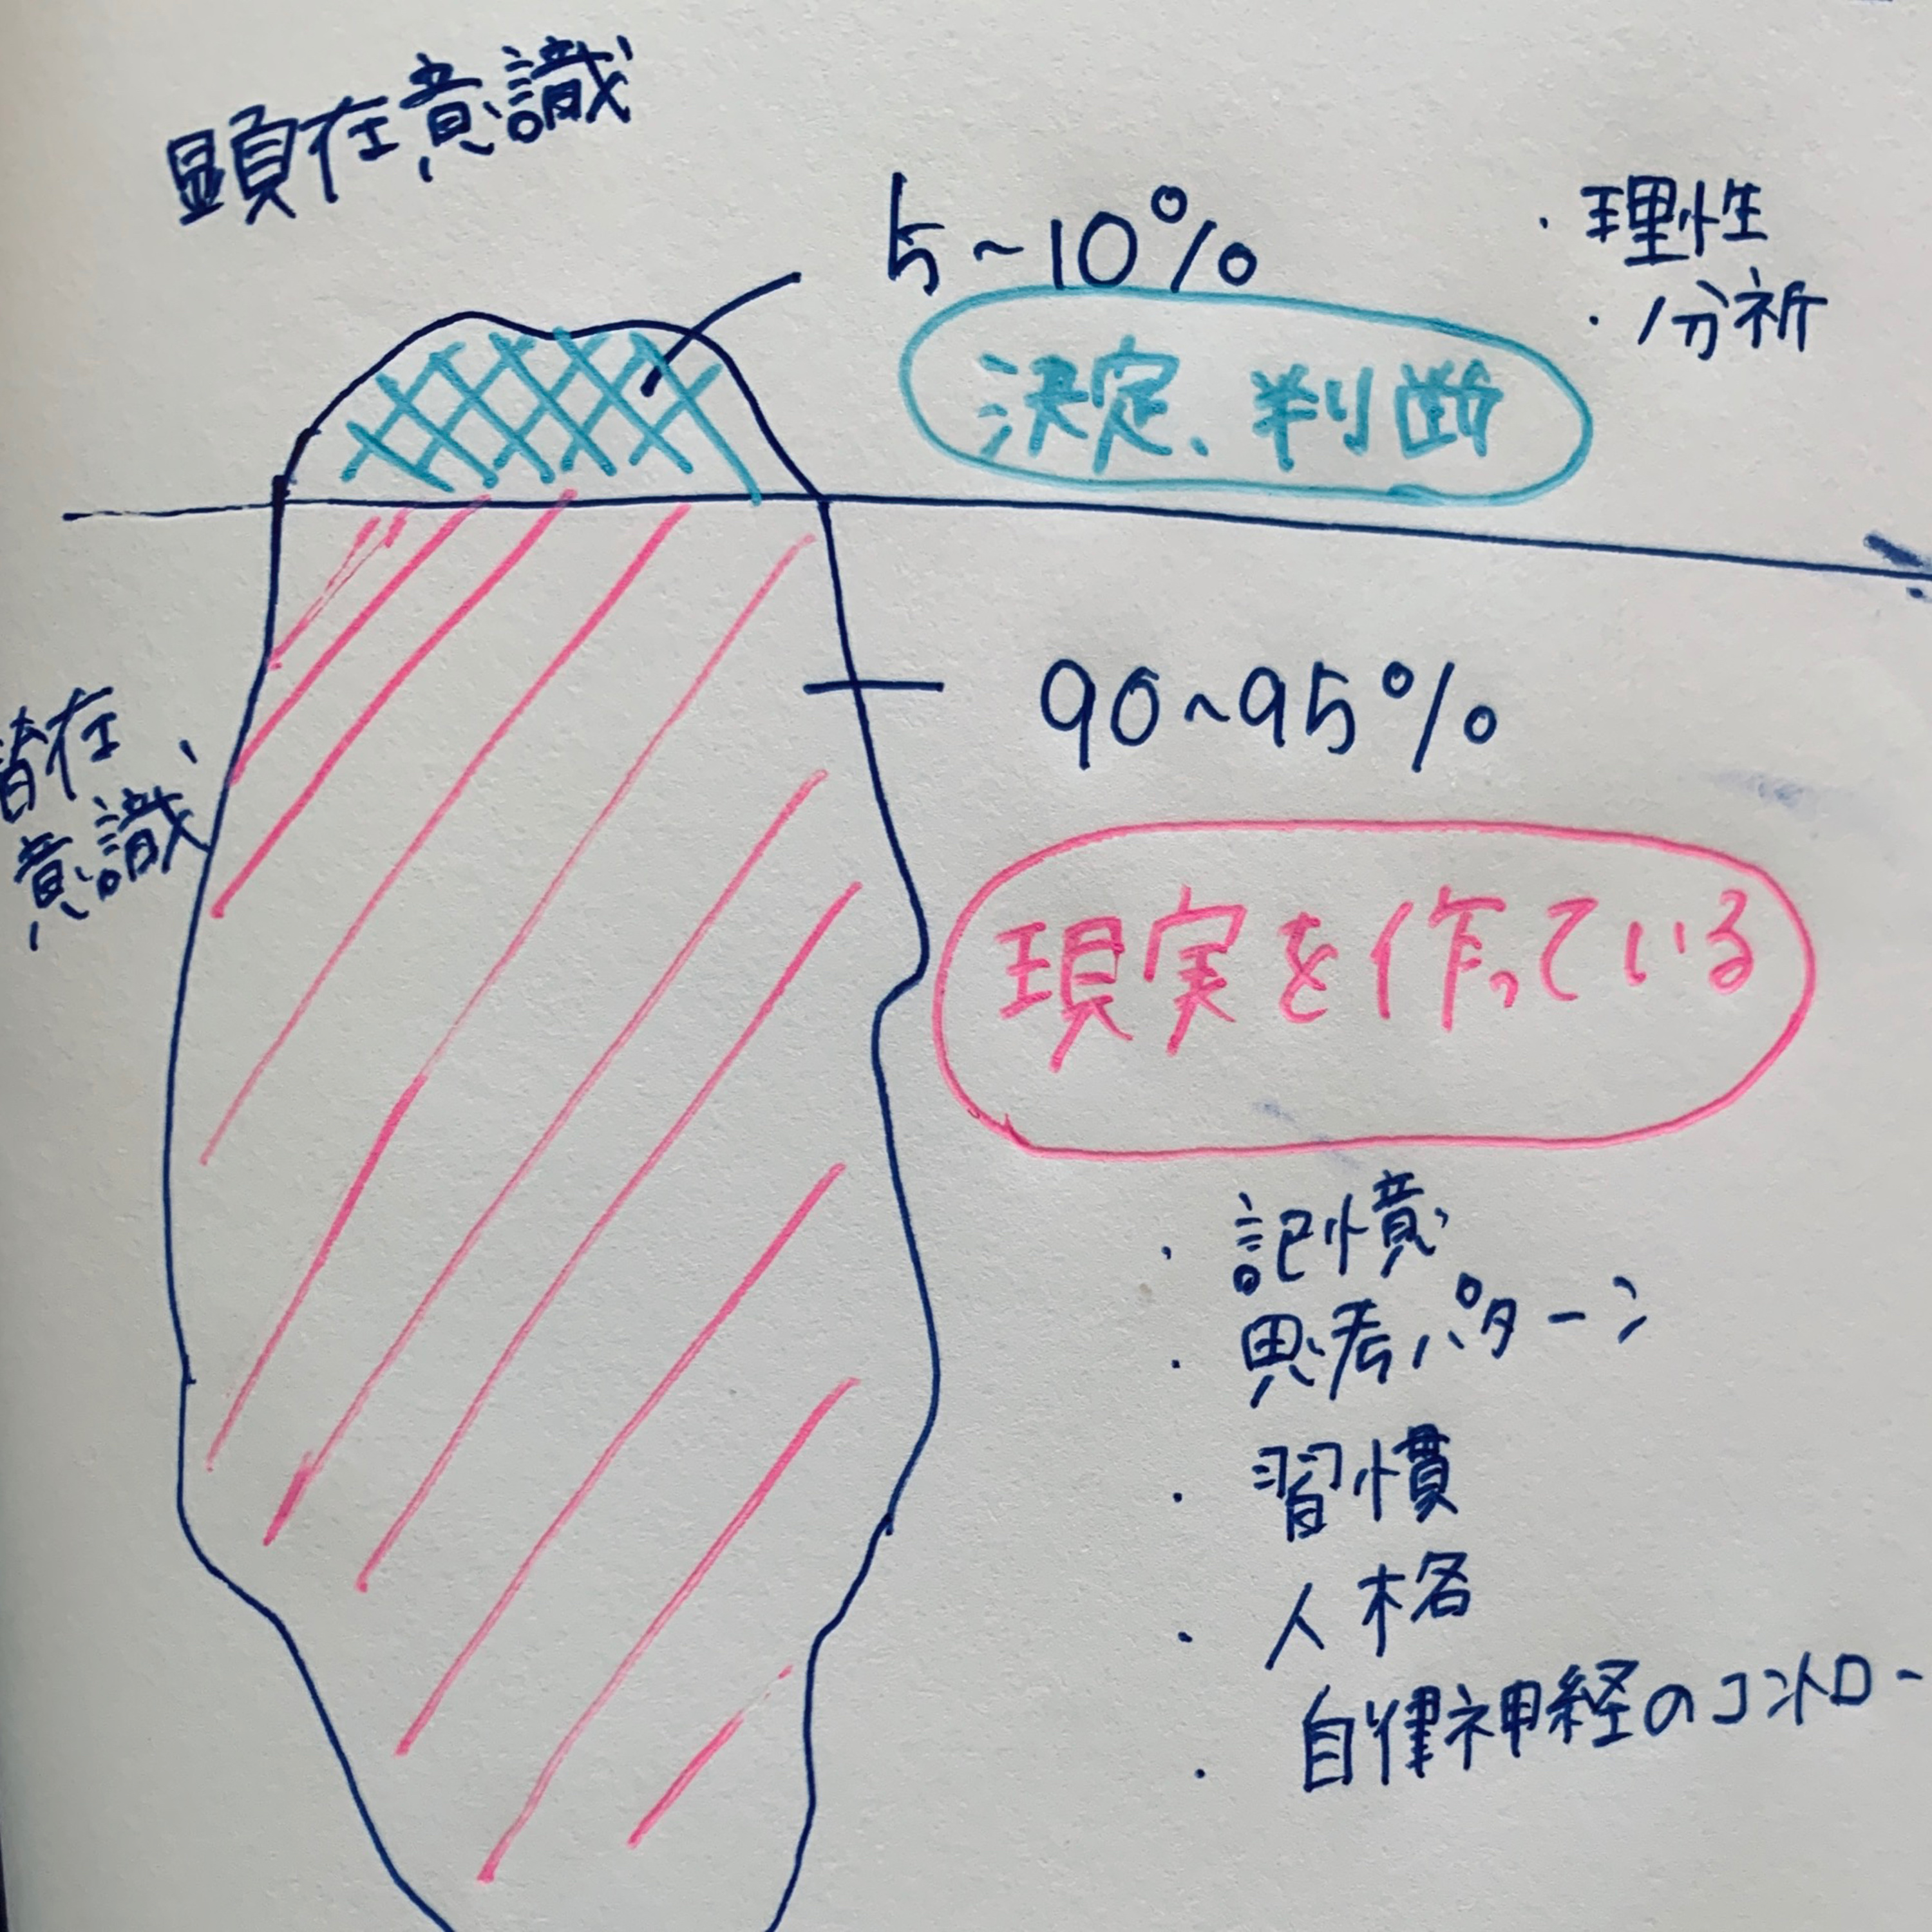 顕在意識
5~10%
・理性
・分析
決定、判断
90~95%
潜在
意識
現実を作っている
・記憶
・思考パターン
・習慣
・人格
・自律神経のコントロー